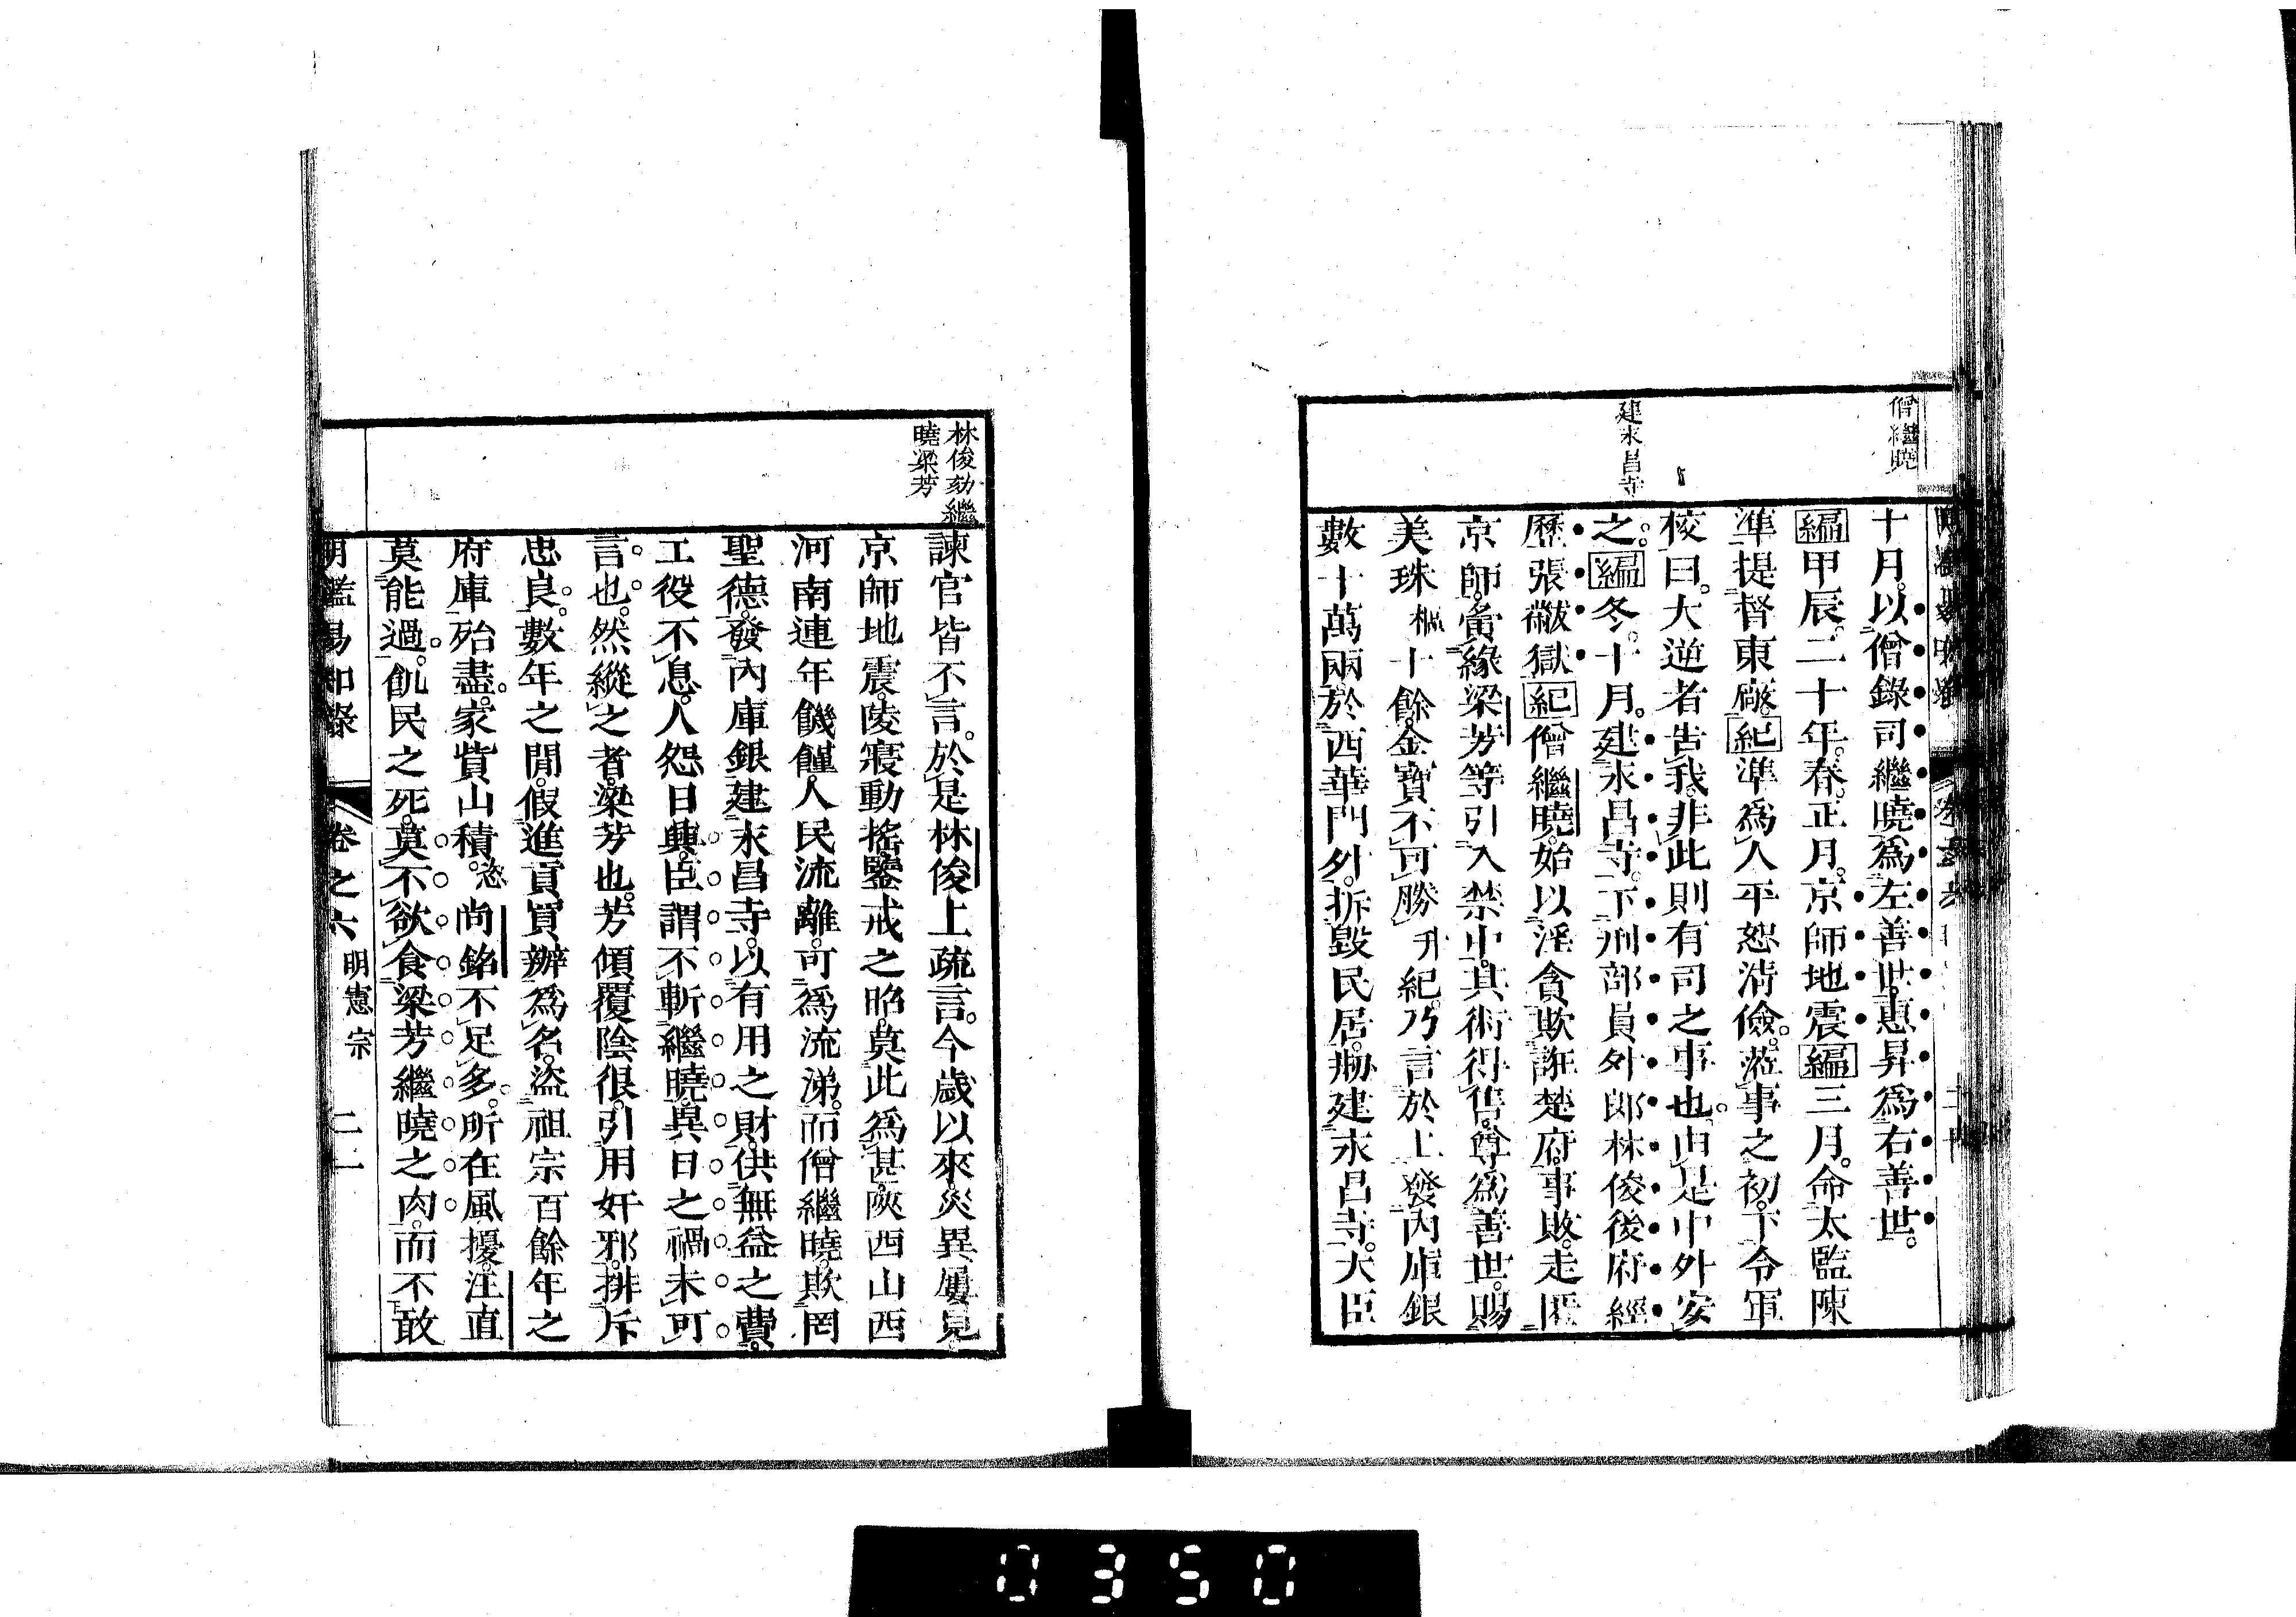 僧繼曉
十月。以僧錄司繼曉爲左善世。惠昇爲右善世。
編甲辰。二十年。春。正月。京師地震編三月。命太監陳
準提督東廠。紀準爲人平恕淸儉。蒞事之初。下令軍
校曰。大逆者告我。非此則有司之事也。由是中外安
建永昌寺
之。編冬。十月。建永昌寺。下刑部員外郎林俊後府經
歷張黻獄紀僧繼曉。始以淫貪欺誑楚府。事敗。走匿
京師。夤緣梁芳等引入禁中。其術得售。尊爲善世。賜
美珠樞十餘。金寶不可勝升紀。乃言於上發內庫銀
數十萬兩。於西華門外。拆毀民居。剙建永昌寺。大臣
林俊劾繼
曉梁芳
諫官皆不言。於是林俊上疏言。今歲以來。災異屢見。
京師地震。陵寢動搖。鑒戒之昭。莫此爲甚。陝西山西
河南連年饑饉。人民流離。可爲流涕。而僧繼曉。欺罔
聖德。發內庫銀建永昌寺。以有用之財。供無益之費。
工役不息。人怨日興。臣謂不斬繼曉。異日之禍未可
言也。然縱之者。梁芳也。芳傾覆陰狠。引用奸邪。排斥
忠良。數年之閒。假進貢買辦爲名。盜祖宗百餘年之
府庫殆盡。家貲山積。尚銘不足多。所在風擾。汪直
莫能過。飢民之死。莫不欲食梁芳繼曉之肉。而不敢
明鑑易知錄 卷之六 明憲宗 二一